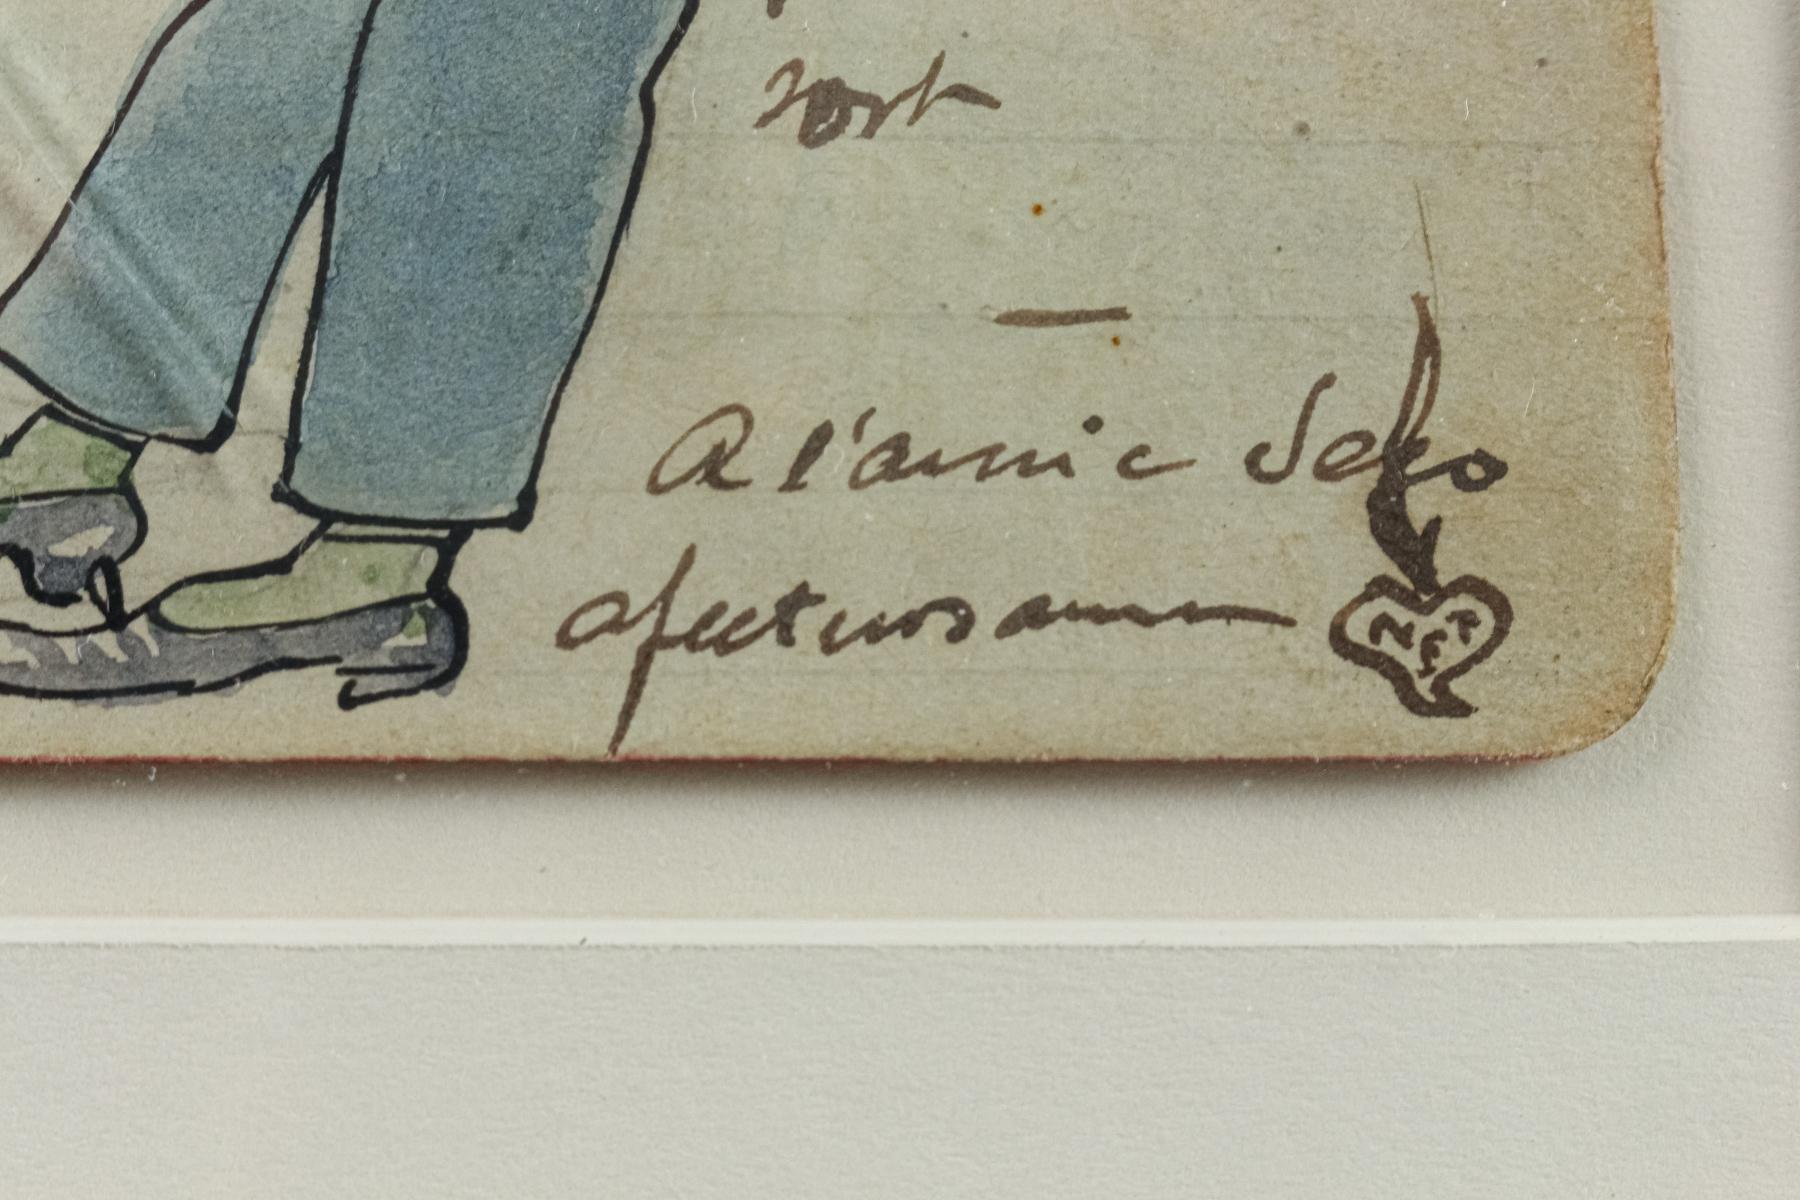 sort
—
A l'amic Seko
afectuosamen
NET